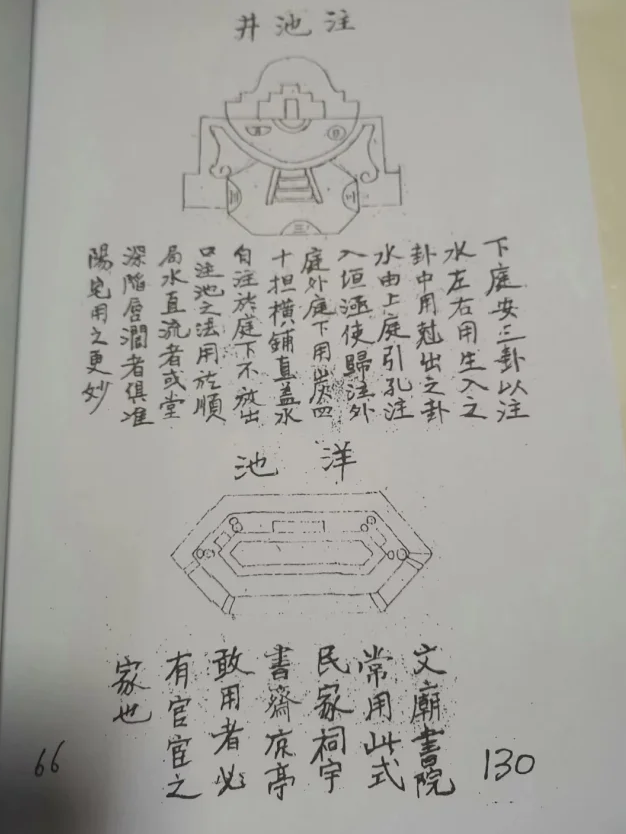 井池注
下庭安三卦以注
水左右用生入之
卦中用尅出之卦
水由上庭引孔注
入垣涵使歸注外
庭外庭下用炭四
十担橫鋪直蓋水
自注於庭下不放出
口注池之法用於順
局水直流者或堂
深陷層瀾者俱准
陽宅用之更妙
池洋
文廟書院
常用此式
民家祠宇
書齋涼亭
敢用者必
有官宦之
家也
66
130